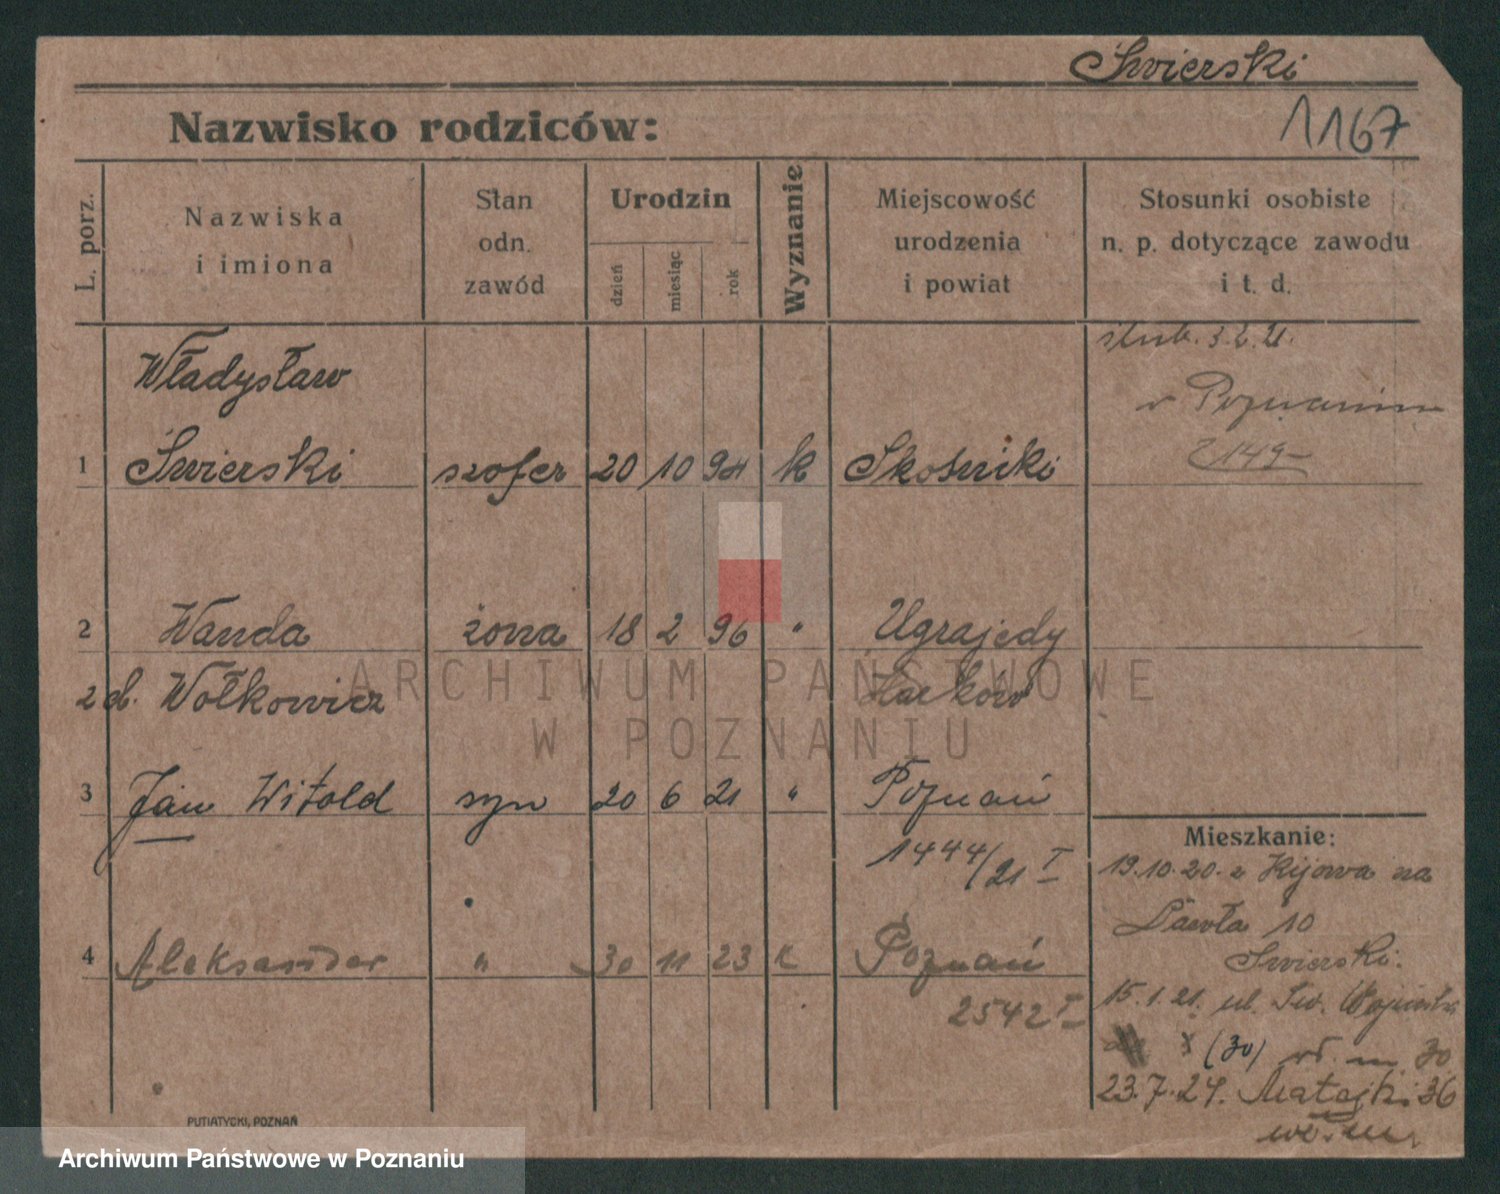 Świerski
Nazwisko rodziców:
1167
L. porz.
Nazwiska
i imiona
Stan
odn.
zawód
Urodzin
dzień
miesiąc
rok
Wyznanie
Miejscowość
urodzenia
i powiat
Stosunki osobiste
n. p. dotyczące zawodu
i t. d.
ślub. 3.2.21.
w Poznaniu
1449
Władysław
1 Świerski szofer 20 10 94 k Skotniki
2 Wanda żona 18 2 96 " Ugrajedy
2 d. Wołkowicz Harków
3 Jan Witold syn 20 6 21 " Poznań
1444/21 I
Mieszkanie:
19.10.20. z Kijowa na
Pawła 10
Świerski.
4 Aleksander " 30 11 23 k Poznań
2542 I
15.1.21. ul. Św. Wojciecha
(30) 30
23.7.24. Matejki 36
PUTIATYCKI, POZNAŃ
ARCHIWUM PAŃSTWOWE
W POZNANIU
Archiwum Państwowe w Poznaniu